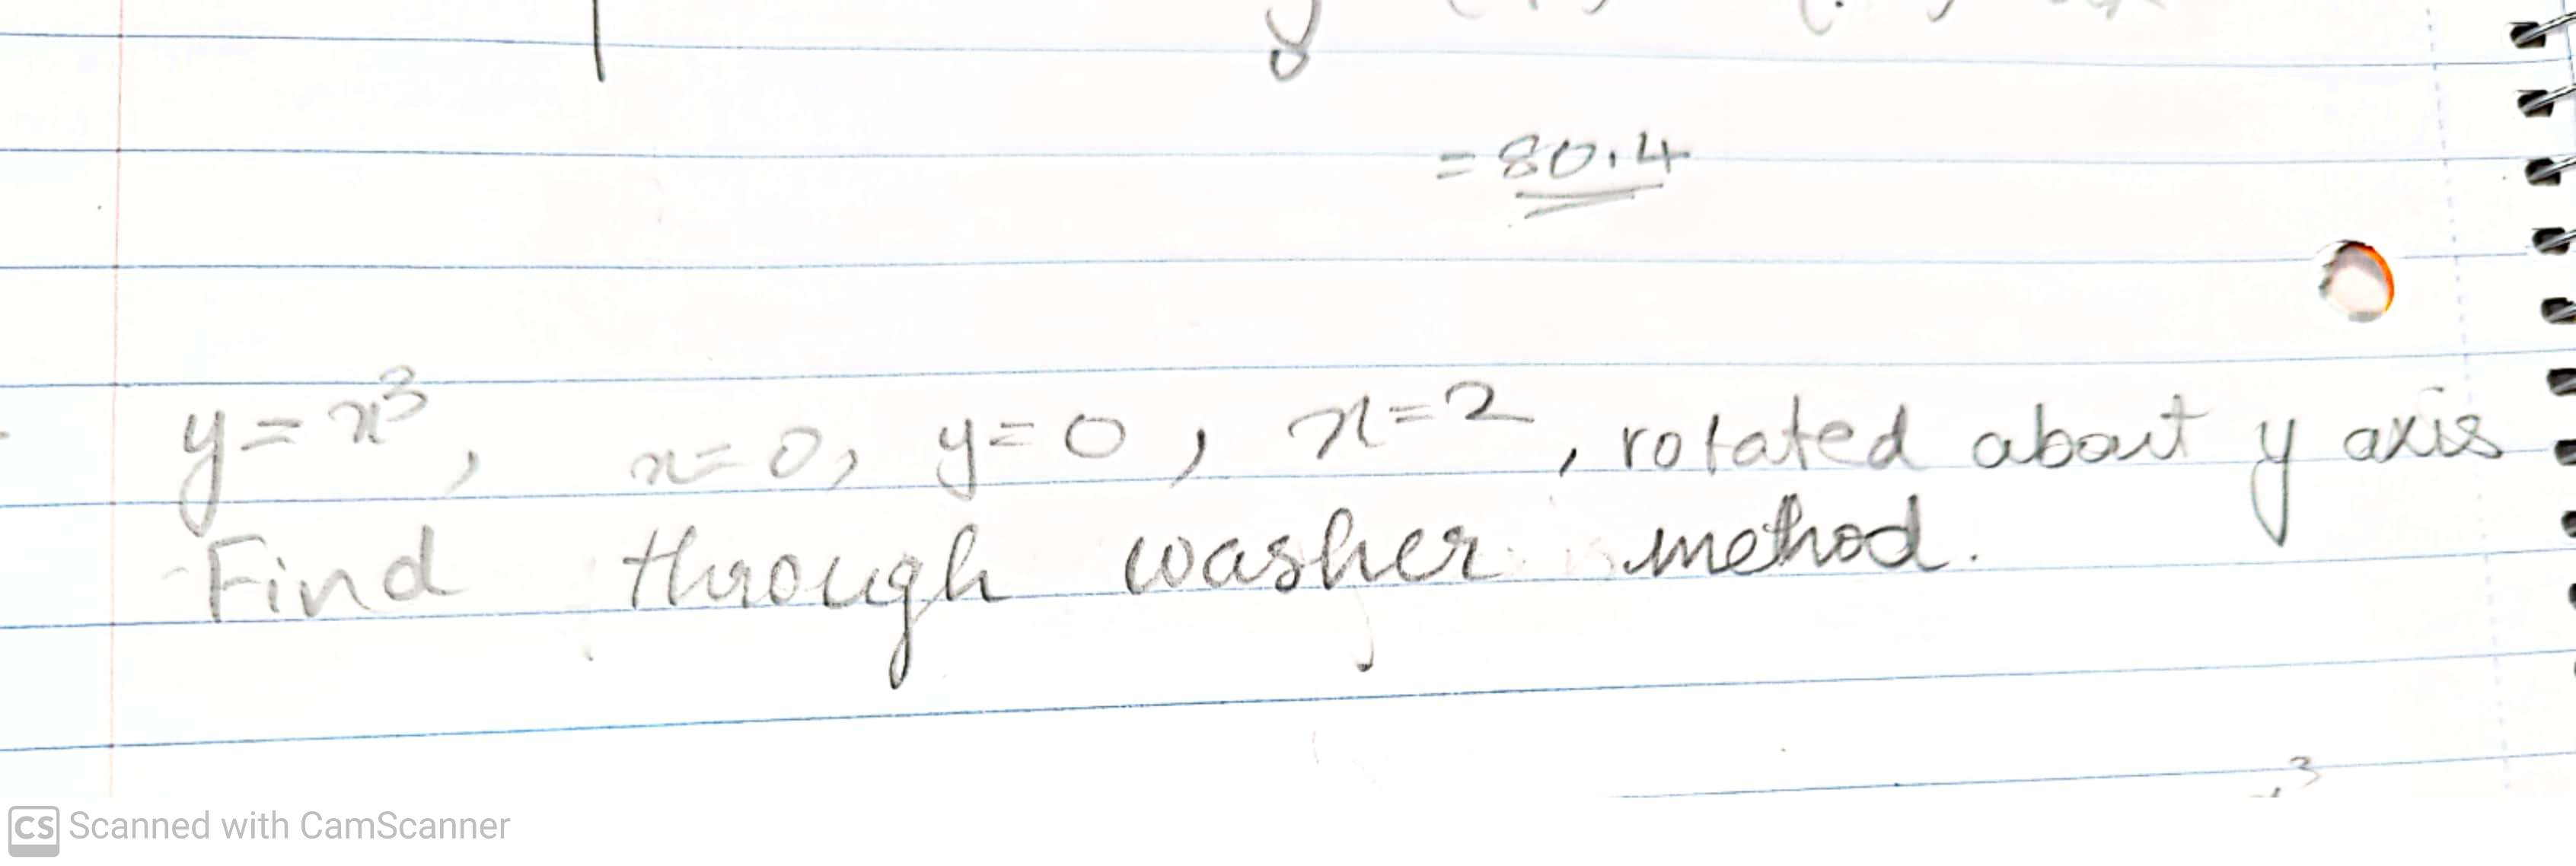 = 80.4
y = x³, x = 0, y = 0, x = 2, rotated about y axis
Find through washer method.
3
CS Scanned with CamScanner